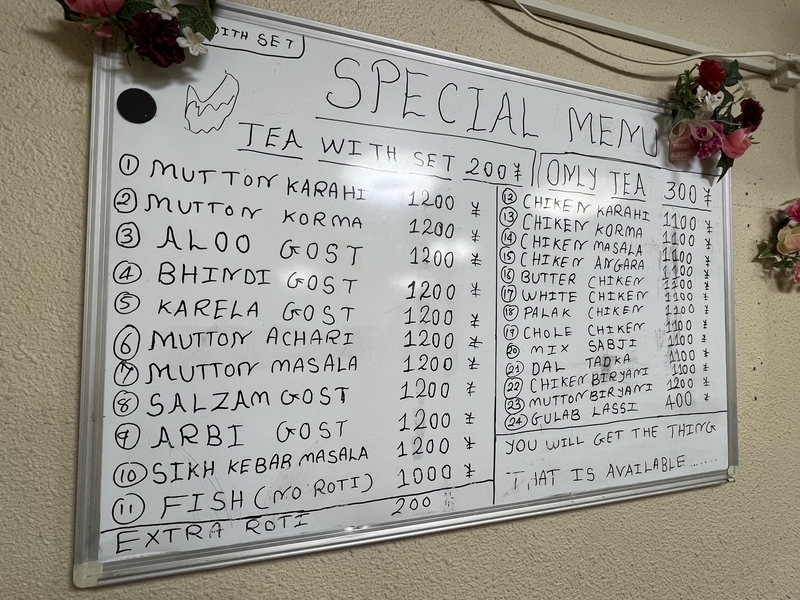 WITH SET
SPECIAL MENU
TEA WITH SET 200 ¥
① MUTTON KARAHI 1200 ¥
② MUTTON KORMA 1200 ¥
③ ALOO GOST 1200 ¥
④ BHINDI GOST 1200 ¥
⑤ KARELA GOST 1200 ¥
⑥ MUTTON ACHARI 1200 ¥
⑦ MUTTON MASALA 1200 ¥
⑧ SALZAM GOST 1200 ¥
⑨ ARBI GOST 1200 ¥
⑩ SIKH KEBAR MASALA 1200 ¥
⑪ FISH (NO ROTI) 1000 ¥
EXTRA ROTI 200 ¥
ONLY TEA 300 ¥
⑫ CHIKEN KARAHI 1100 ¥
⑬ CHIKEN KORMA 1100 ¥
⑭ CHIKEN MASALA 1100 ¥
⑮ CHIKEN ANGARA 1100 ¥
⑯ BUTTER CHIKEN 1100 ¥
⑰ WHITE CHIKEN 1100 ¥
⑱ PALAK CHIKEN 1100 ¥
⑲ CHOLE CHIKEN 1100 ¥
⑳ MIX SABJI 1100 ¥
㉑ DAL TADKA 1100 ¥
㉒ CHIKEN BIRYANI 1100 ¥
㉓ MUTTON BIRYANI 1200 ¥
㉔ GULAB LASSI 400 ¥
YOU WILL GET THE THING
THAT IS AVAILABLE......